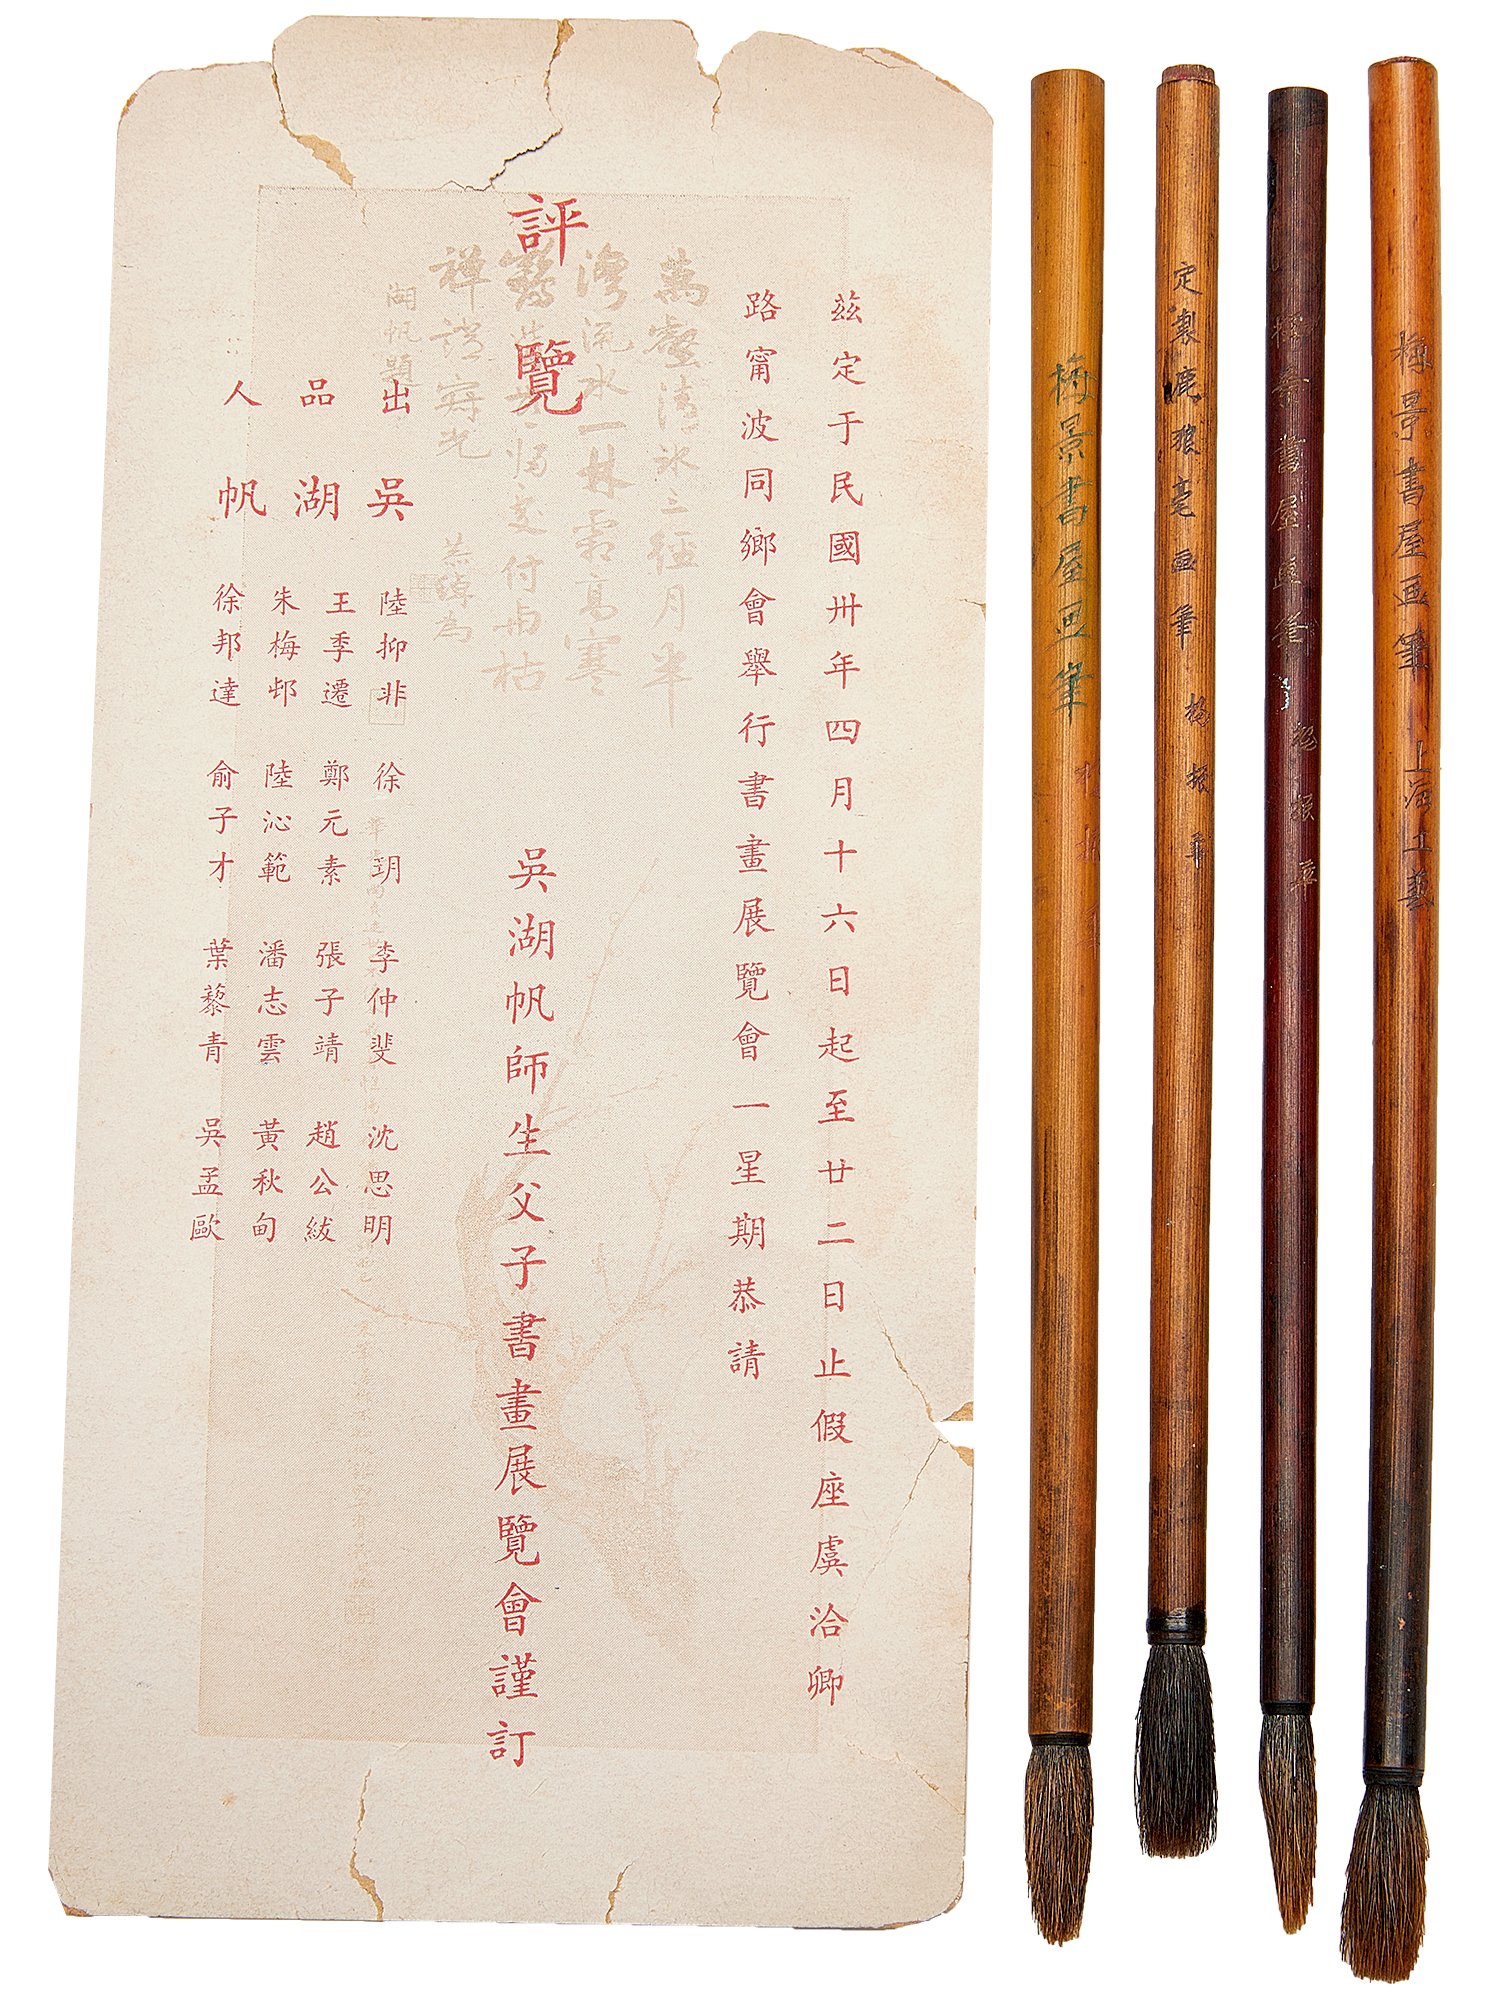 茲定于民國卅年四月十六日起至廿二日止假座虞洽卿
路甯波同鄉會舉行書畫展覽會一星期恭請
評覽
吳湖帆師生父子書畫展覽會謹訂
出品人
吳湖帆
陸抑非 徐玥 李仲斐 沈思明
王季遷 鄭元素 張子靖 趙公紱
朱梅邨 陸沁範 潘志雲 黃秋甸
徐邦達 俞子才 葉藜青 吳孟歐
萬壑清冰三徑月半
灣流水一林霜高寒
歸交付与枯
禪證寂光
湖帆題
梅景書屋画筆
定製鹿狼毫画筆 楊振華
梅景書屋画筆 楊振華
梅景書屋画筆 上海工藝